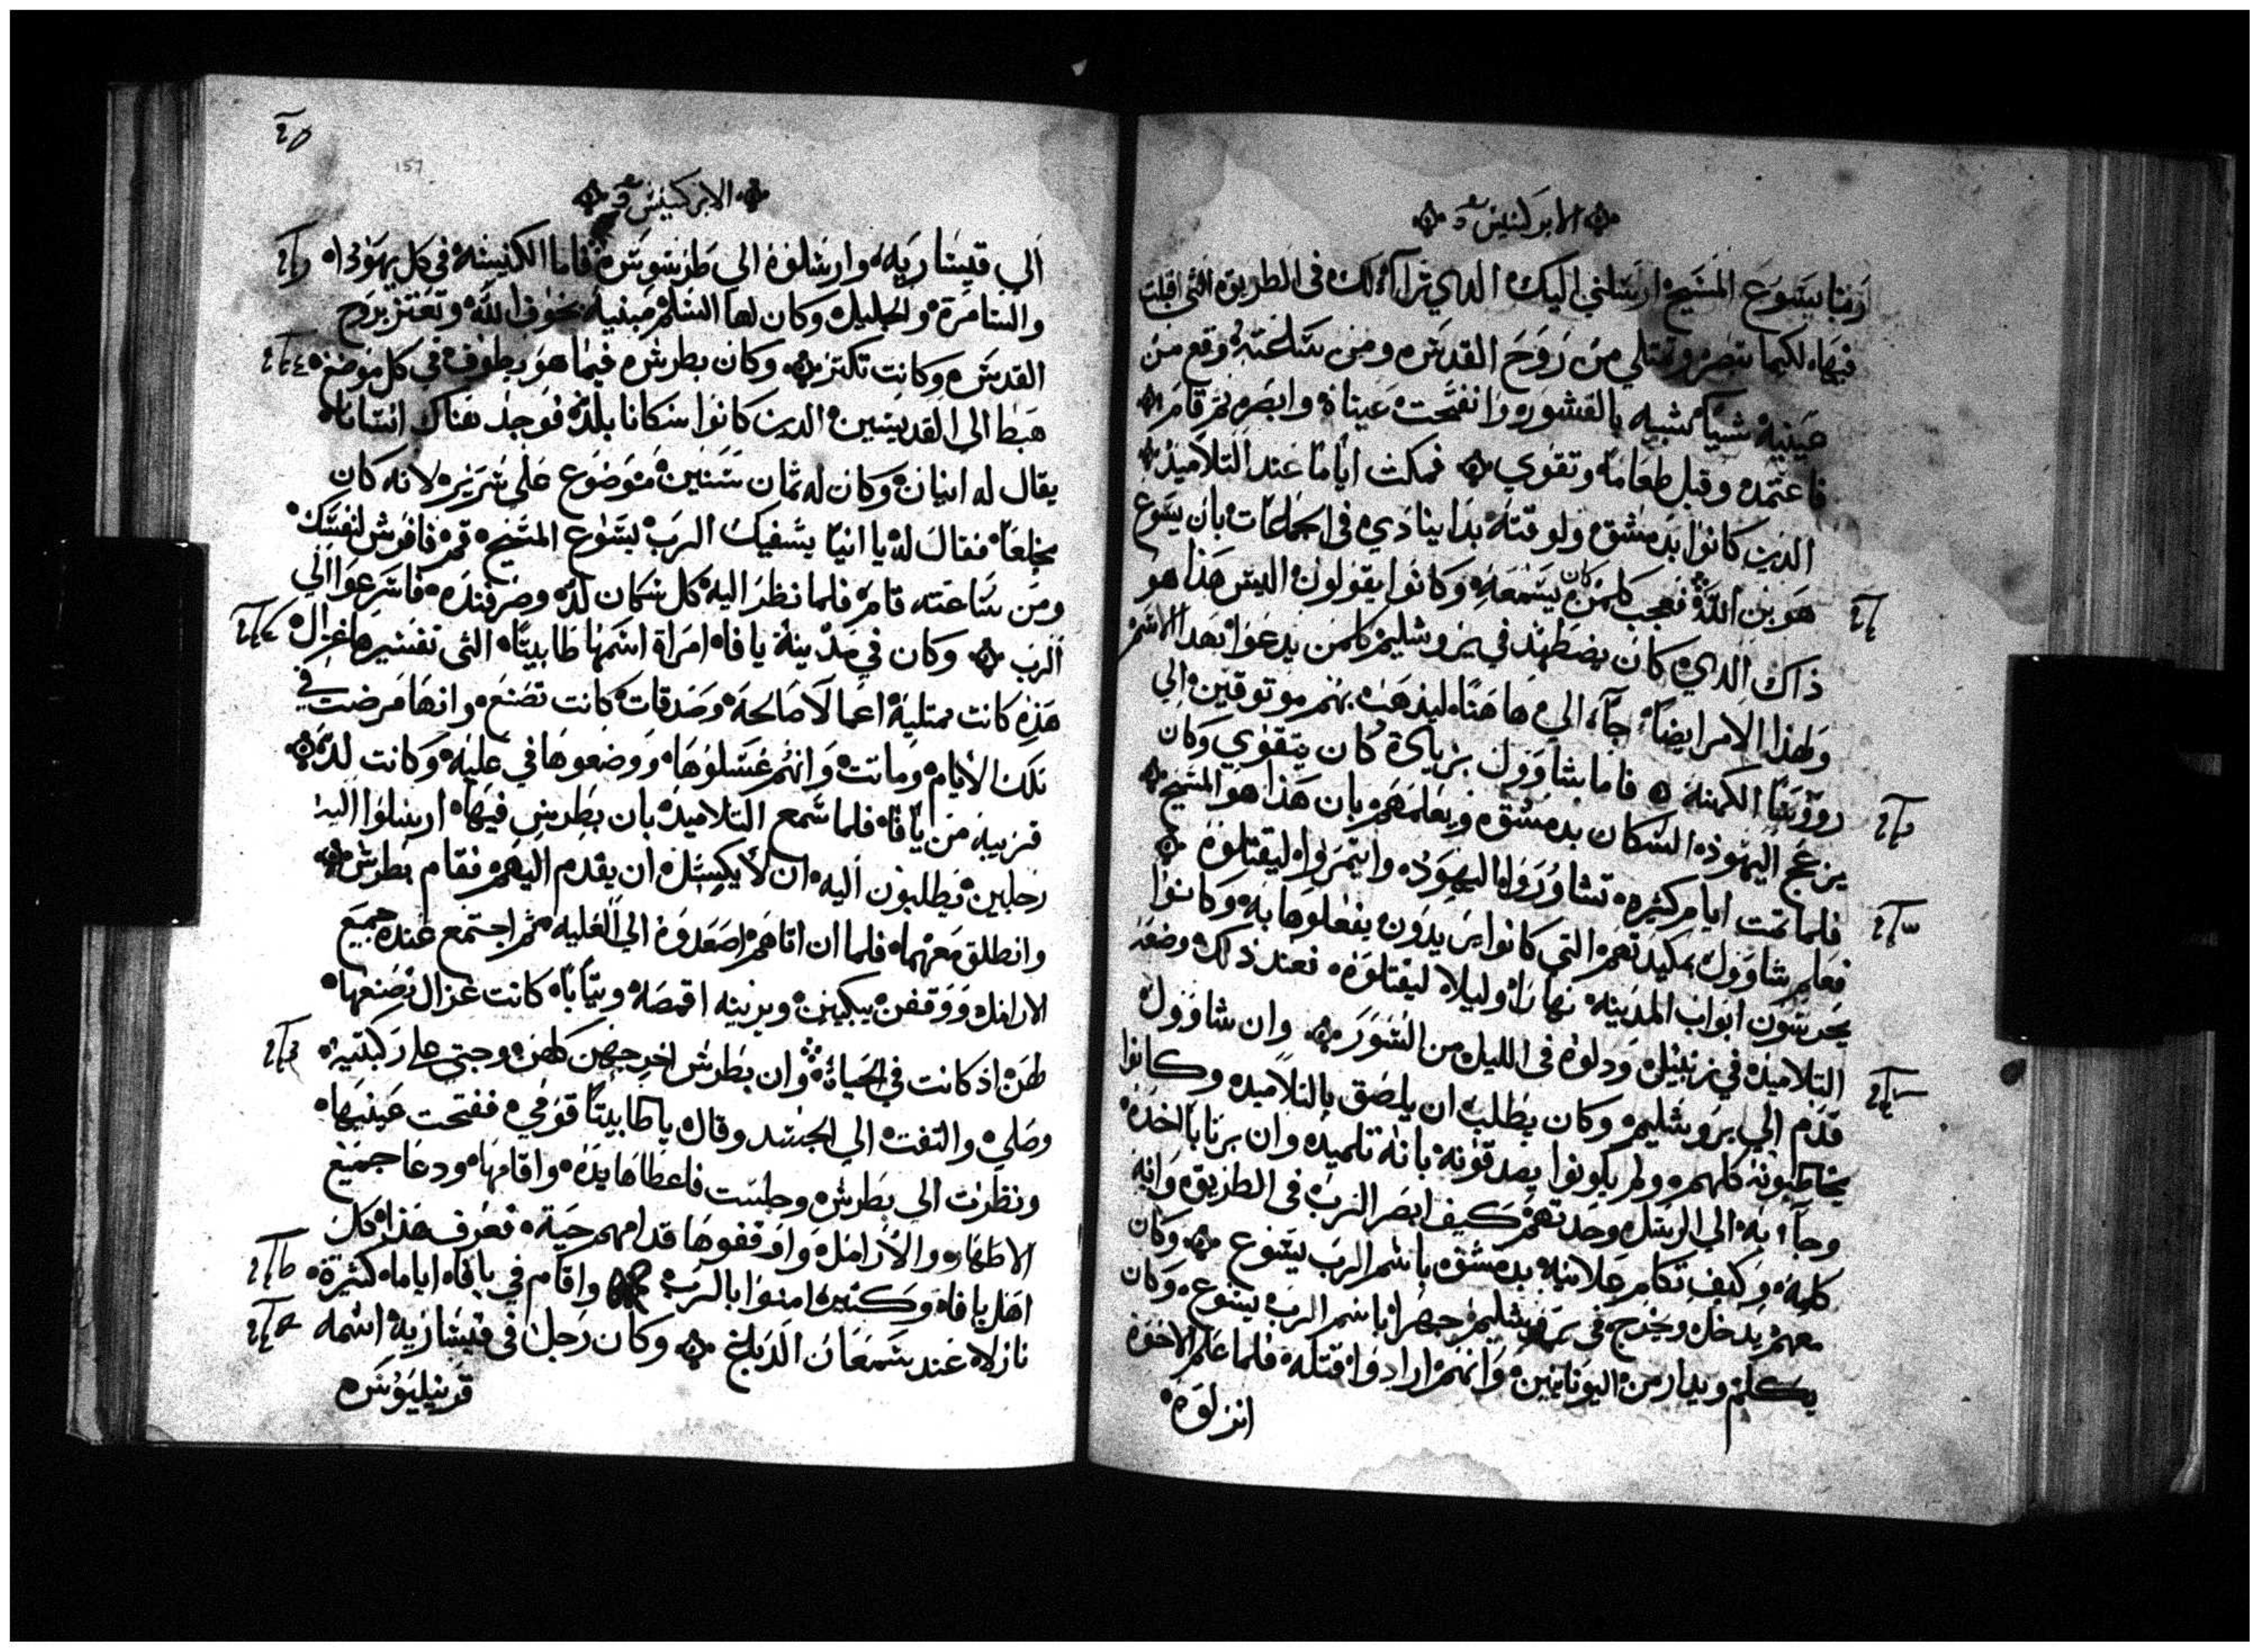 الابركسيس
ربنا يسوع المسيح ارسلني اليك الدي تراآ لك في الطريق التي اقبلت
فيها لكيما تبصر وتمتلي من روح القدس ومن ساعته وقع من
عينيه شيا كشبه بالقشور وانفتحت عيناه وابصر ثم قام
فاعتمد وقبل طعاما وتقوي فمكث اياما عند التلاميذ
الذين كانوا بدمشق ولوقته بدا ينادي في الجماعات بان يسوع
هو بن الله فعجب كلمن كان يسمعه وكانوا يقولون اليس هذا هو
ذاك الدي كان يضطهد في يروشليم كلمن يدعوا بهدا الاسم
ولهذا الامر ايضا جآء الي ها هنا ليذهب بهم موتوقين الي
روؤسا الكهنه فاما شاوول بزيادة كان يتقوي وكان
يزعج اليهود السكان بدمشق ويعلمهم بان هذا هو المسيح
فلما تمت ايام كثيره تشاوروا اليهود وايتمروا ليقتلوه
فعلم شاوول بمكيدتهم التي كانوا يريدون يفعلوها به وكانوا
يحرسون ابواب المدينه نهارا وليلا ليقتلوه فعند ذلك وضعه
التلاميد في زنبيل ودلوه في الليل من السور وان شاوول
قدم الي يروشليم وكان يطلب ان يلصق بالتلاميد وكانوا
يخاطبونه كلهم ولم يكونوا يصدقونه بانه تلميد وان برنابا اخده
وجآء به الي الرسل وحدتهم كيف ابصر الرب في الطريق وانه
كلمه وكيف تكلم علانيه بدمشق باسم الرب يسوع وكان
معهم يدخل ويخرج في يروشليم جهرا باسم الرب يسوع وكان
يكلم ويدار من اليونانيين وانهم ارادوا قتله فلما علم الاخوه
انزلوه
٢٥
157
الابركسيس
الي قيساريه وارسلوه الي طرسوس فاما الكنيسه في كل يهودا
والسامرة والجليل وكان لها السلم مبنيه بخوف الله وتعتز بروح
القدس وكانت تكتر وكان بطرس فيما هو يطوف في كل موضع
هبط الي القديسين الدين كانوا سكانا بلد فوجد هناك انسانا
يقال له انيان وكان له ثمان سنين موضوع علي سرير لانه كان
مخلعا فقال له يا انيا يشفيك الرب يسوع المسيح قم فافرش لنفسك
ومن ساعته قام فلما نظر اليه كل سكان لد وصرفنده فاسرعوا الي
الرب وكان في مدينة يافا امراة اسمها طابيتا التى تفسيرها غزال
هذه كانت ممتلية اعمالا صالحه وصدقات كانت تصنع وانها مرضت في
تلك الايام وماتت وانهم غسلوها ووضعوها في عليه وكانت لد
قريبه من يافا فلما سمع التلاميد بان بطرس فيها ارسلوا اليه
رجلين يطلبون اليه ان لا يكسل ان يقدم اليهم فقام بطرس
وانطلق معهما فلما ان اتاهم اصعدوه الي العليه ثم اجتمع عنده جميع
الارامل ووقفن يبكين ويرينه اقمصه وتيابا كانت غزال تصنعها
لهن اذ كانت في الحياة وان بطرس اخرجهن كلهن وجتي علي ركبتيه
وصلي والتفت الي الجسد وقال يا طابيتا قومي ففتحت عينيها
ونظرت الي بطرس وجلست فاعطاها يده واقامها ودعا جميع
الاطهار والارامل واوقفوها قدامهم حية فعرف هذا كل
اهل يافا وكتير امنوا بالرب واقام في يافا اياما كثيرة
نازلا عند سمعان الدباغ وكان رجل في قيساريه اسمه
قرنيليوس